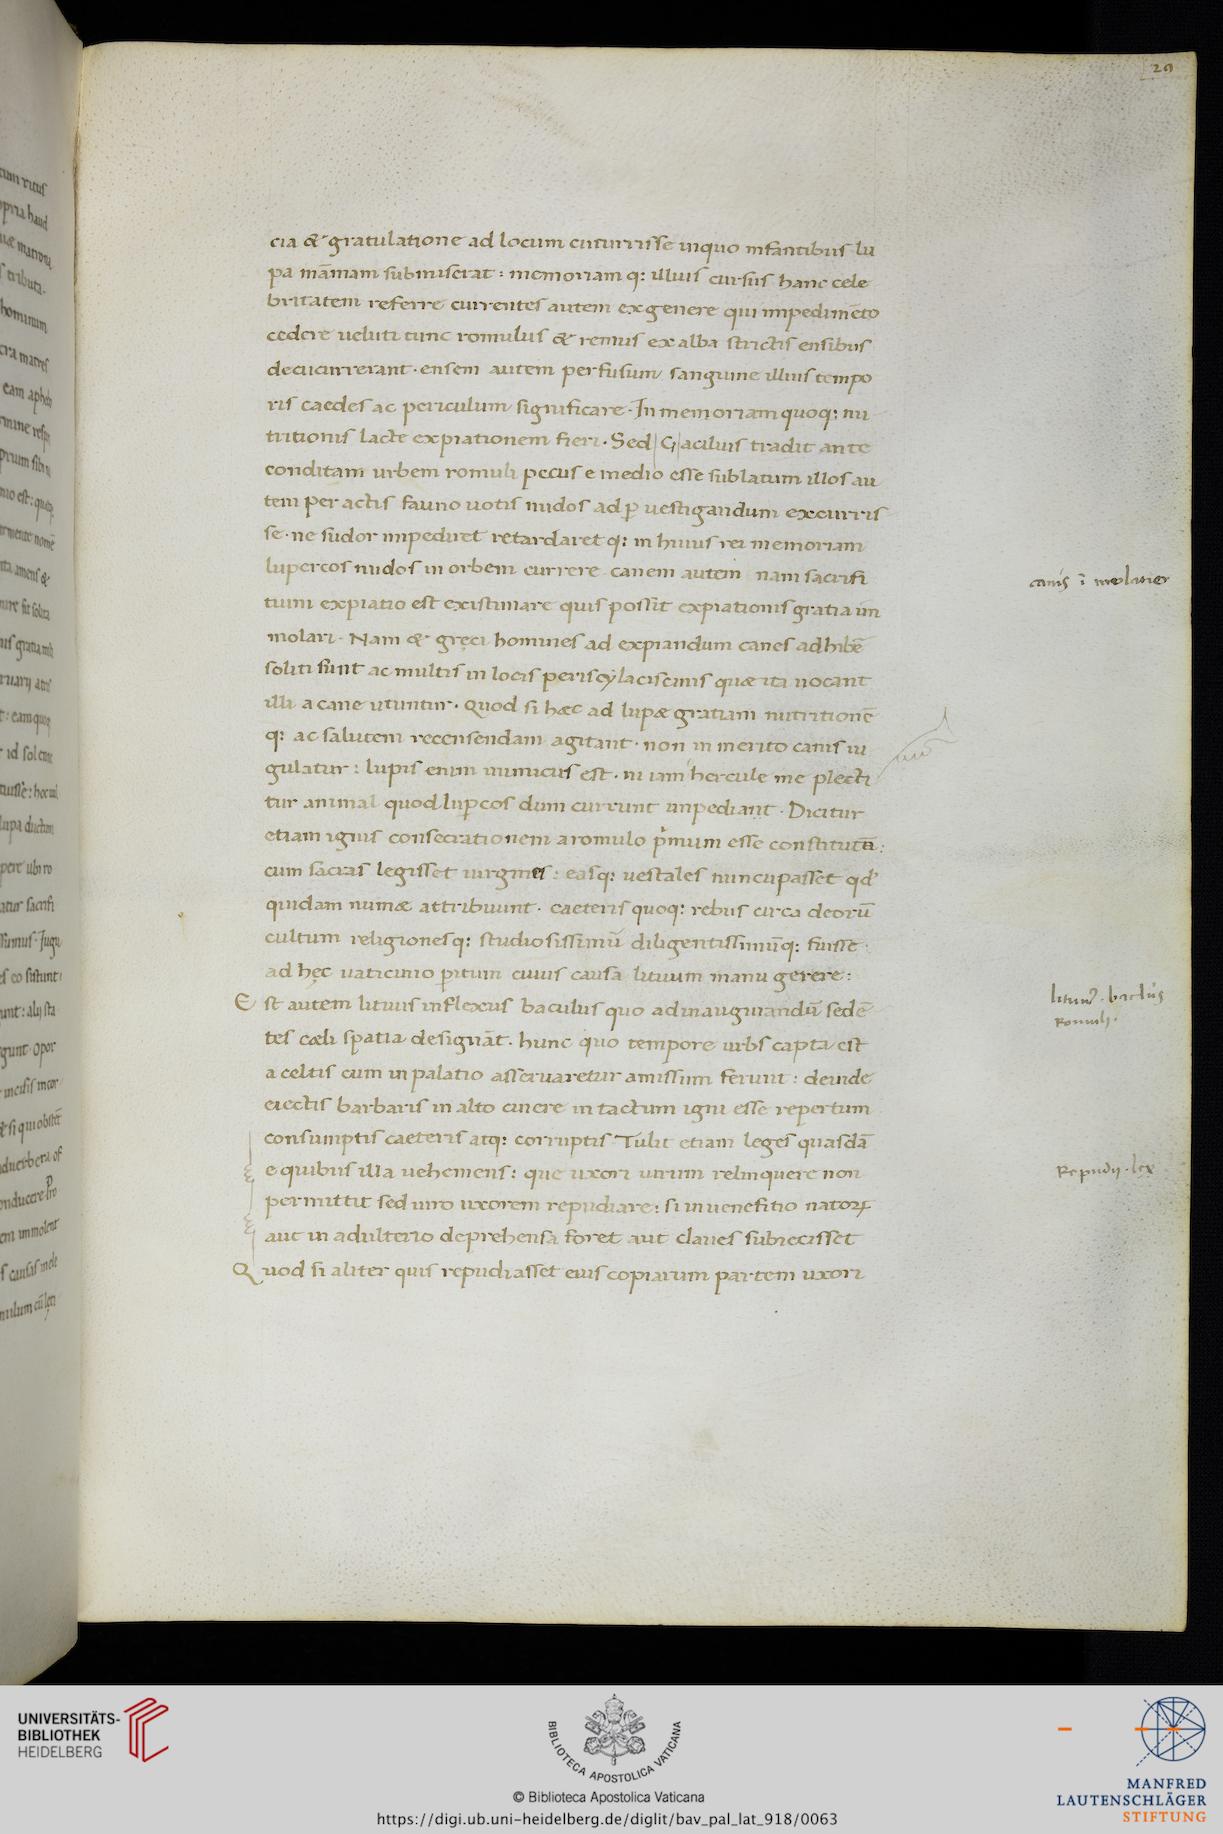 29
cia & gratulatione ad locum cucurrisse inquo infantibus lu
pa mām̄am submiserat : memoriam q: illius cursus hanc cele
britatem referre currentes autem exgenere qui impedimēto
cedere veluti tunc romulus & remus ex alba strictis ensibus
decucurrerant · ensem autem perfusum sanguine illius tempo
ris caedes ac periculum significare · In memoriam quoq: nu
tritionis lacte expiationem fieri · Sed G acilius tradit ante
conditam urbem romuli pecus e medio esse sublatum illos au
tem per actis fauno uotis nudos ad ꝑ uestigandum excurris
se · ne sudor impediret retardaret q: in huius rei memoriam
lupercos nudos in orbem currere canem autem nam sacrifi
tium expiatio est existimare quis possit expiationis gratia im
molari · Nam & gręci homines ad expiandum canes adhibē
soliti sunt ac multis in locis periscylaciscinis quæ ita uocant
illi a cane utuntur · Quod si hæc ad lupæ gratiam nutritionē
q: ac salutem recensendam agitant · non in merito canis iu
gulatur : lupis enim inimicus est · ni iam hercule me plecti
tur animal quod luꝑcos dum currunt impediant · Dicitur
etiam ignis consecrationem a romulo pͥmum esse constitutū :
cum sacras legisset uirgines : easq: uestales nuncupasset qđ
quidam numæ attribuunt · caeteris quoq: rebus circa deorū
cultum religionesq: studiosissimū diligentissimūq: fuisse :
ad hęc uaticinio ꝑitum cuius causa lituum manu gerere :
E st autem lituus inflexus baculus quo ad inaugurandū sedē
tes cœli spatia designāt · hunc quo tempore urbs capta est
a celtis cum in palatio asseruaretur amissum ferunt : deinde
eiectis barbaris in alto cinere in tactum igni esse repertum
consumptis caeteris atq: corruptis Tulit etiam leges quasdā
e quibus illa uehemens : que uxori uirum relinquere non
permittit sed uiro uxorem repudiare : si in uenefitio natoꝝ
aut in adulterio deprehensa foret aut claues subiecisset
Q uod si aliter quis repudiasset eius copiarum partem uxori
canis
Romuli ·
Repudij · lex
UNIVERSITÄTS-
BIBLIOTHEK
HEIDELBERG
BIBLIOTECA APOSTOLICA VATICANA
© Biblioteca Apostolica Vaticana
https://digi.ub.uni-heidelberg.de/diglit/bav_pal_lat_918/0063
MANFRED
LAUTENSCHLÄGER
STIFTUNG